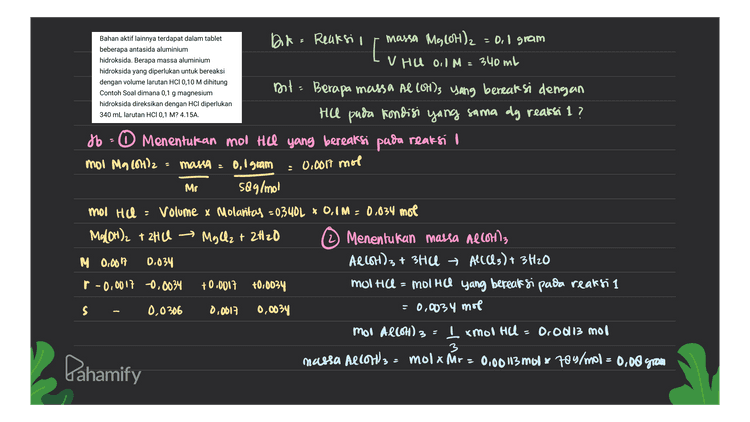 Bahan aktif lainnya terdapat dalam tablet
beberapa antasida aluminium
hidroksida. Berapa massa aluminium
hidroksida yang diperlukan untuk bereaksi
dengan volume larutan HCl 0,10 M dihitung
Contoh Soal dimana 0,1 g magnesium
hidroksida direksikan dengan HCl diperlukan
340 mL larutan HCl 0,1 M? 4.15A.
Dik = Reaksi 1 [ massa Mg(OH)2 = 0,1 gram
V HCl 0,1 M = 340 mL
Dit = Berapa massa Al(OH)3 yang bereaksi dengan
HCl pada kondisi yang sama dg reaksi 1 ?
Jb = ① Menentukan mol HCl yang bereaksi pada reaksi 1
mol Mg(OH)2 = massa = 0,1 gram = 0,0017 mol
Mr 58 g/mol
mol HCl = Volume x Molaritas = 0,340L x 0,1 M = 0,034 mol
Mg(OH)2 + 2HCl → MgCl2 + 2H2O
M 0,0017 0,034
r -0,0017 -0,0034 +0,0017 +0,0034
s - 0,0306 0,0017 0,0034
② Menentukan massa Al(OH)3
Al(OH)3 + 3HCl → Al(Cl3) + 3H2O
mol HCl = mol HCl yang bereaksi pada reaksi 1
= 0,0034 mol
mol Al(OH)3 = 1/3 x mol HCl = 0,00113 mol
massa Al(OH)3 = mol x Mr = 0,00113 mol x 78 g/mol = 0,08 gram
Pahamify